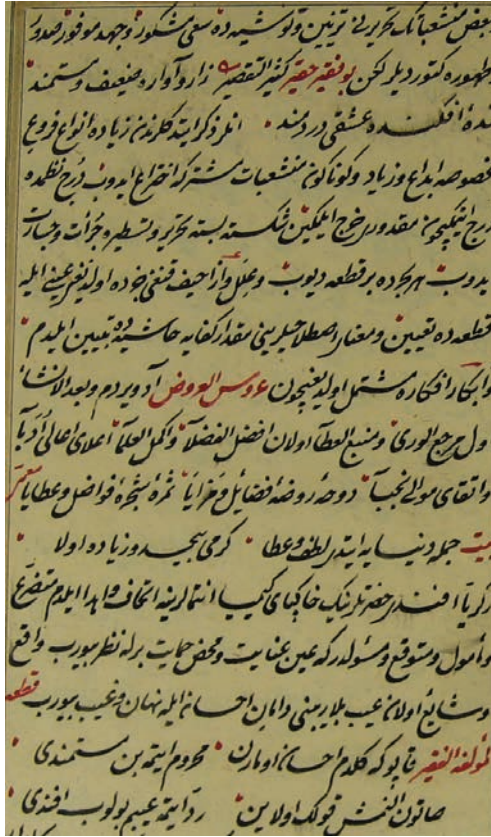 بعض منشعباتك تحريرنى تزيين وتوشيه ده سعى مشكور وجهد موفور
ظهوره كتورديلر لكن بو فقير حقير كثير التقصير زار و آواره ضعيف ومستمند
بندۀ افكنده عشقى دردمند انلر ذكر ايتدكلرندن زياده انواع فروع
خصوصه ابداع و زياد وكوناكون منشعبات مشتركه اختراع ايدوب درج نظمده
درج ايتمكيچون مقدورى خرج ايلمكين شكسته بسته تحرير وتسطيره جرأت وجسارت
ايدوب هر بحرده بر قطعه ديوب وعلل و ازاحيف قنغى جزؤده اولديغى عينى ايله
قطعه ده تعيين ومعناى اصطلاحيلرينى مقدار كفايه حاشيه ده تبيين ايلدم
وابكار افكاره مشتمل اولديغيچون عروس العروض آد ويردم وبعد الانشا
اول مرجع الورى ومنبع العطآ اولان افضل الفضلآ واكمل العلمآ اعلاى اعالئ
واتقاى موالى نجبآ دوحۀ روضۀ فضايل و مزايا ثمرۀ شجرۀ فواضل وعطايا
بيت جمله دنيايه ايتدى لطف وعطا كرمى بيحد و زياده اولا
زكريا افندى حضرتلرينك خاكپاى كيميا انتمالرينه اتحاف واهدا ايلدم متضرع
ومأمول ومتوقع ومسئولدر كه عين عنايت ومحض حمايت برله نظر بيورب واقع
وشايع اولان عيب بلا ريبمى دامان احسانى ايله نهان وغيب بيورب قطعه
لمؤلفه الفقير قاپوكه كلدم احسان اومارن محروم ايتمه بن مستمندى
صاتون المش قولك اولاين رد ايتمه عيبم بولوب افندى